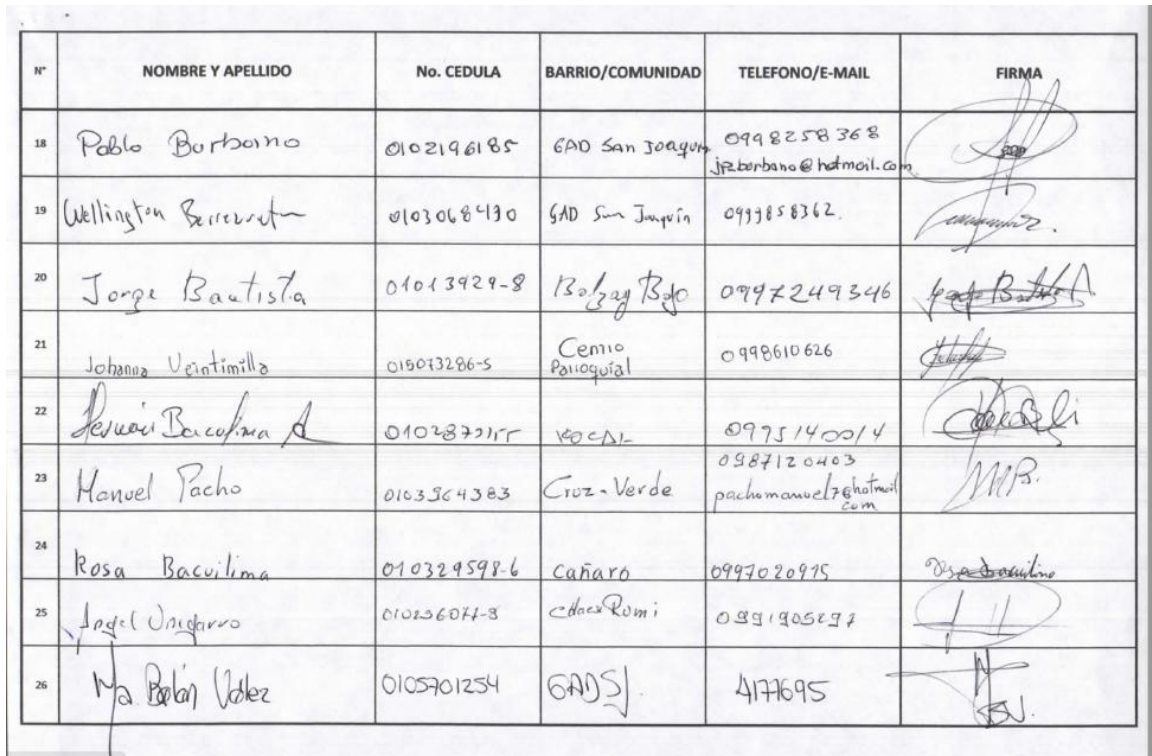 N° NOMBRE Y APELLIDO No. CEDULA BARRIO/COMUNIDAD TELEFONO/E-MAIL FIRMA
18 Pablo Burbano 0102196185 GAD San Joaquin 0998258368
jpzburbano@hotmail.com
19 Wellington 0103068490 GAD San Joaquín 0999858362.
20 Jorge Bautista 01013929-8 Balzay Bajo 0997249346
21 Johanna Veintimilla 015073286-5 Centro
Parroquial 0998610626
22 Hernán Bacuilima A VOCAL 0995140014
23 Manuel Pacho 0103964383 Cruz-Verde 0987120403
pachomanuel7@hotmail
com MP.
24 Rosa Bacuilima 010329598-6 Cañaro 0997020975 Rosa Bacuilima
25 Angel Unigarro 010256071-8 Rumi 0991905297
26 Ma. Belén Vélez 0105701254 GADSJ. 4177695 BV.